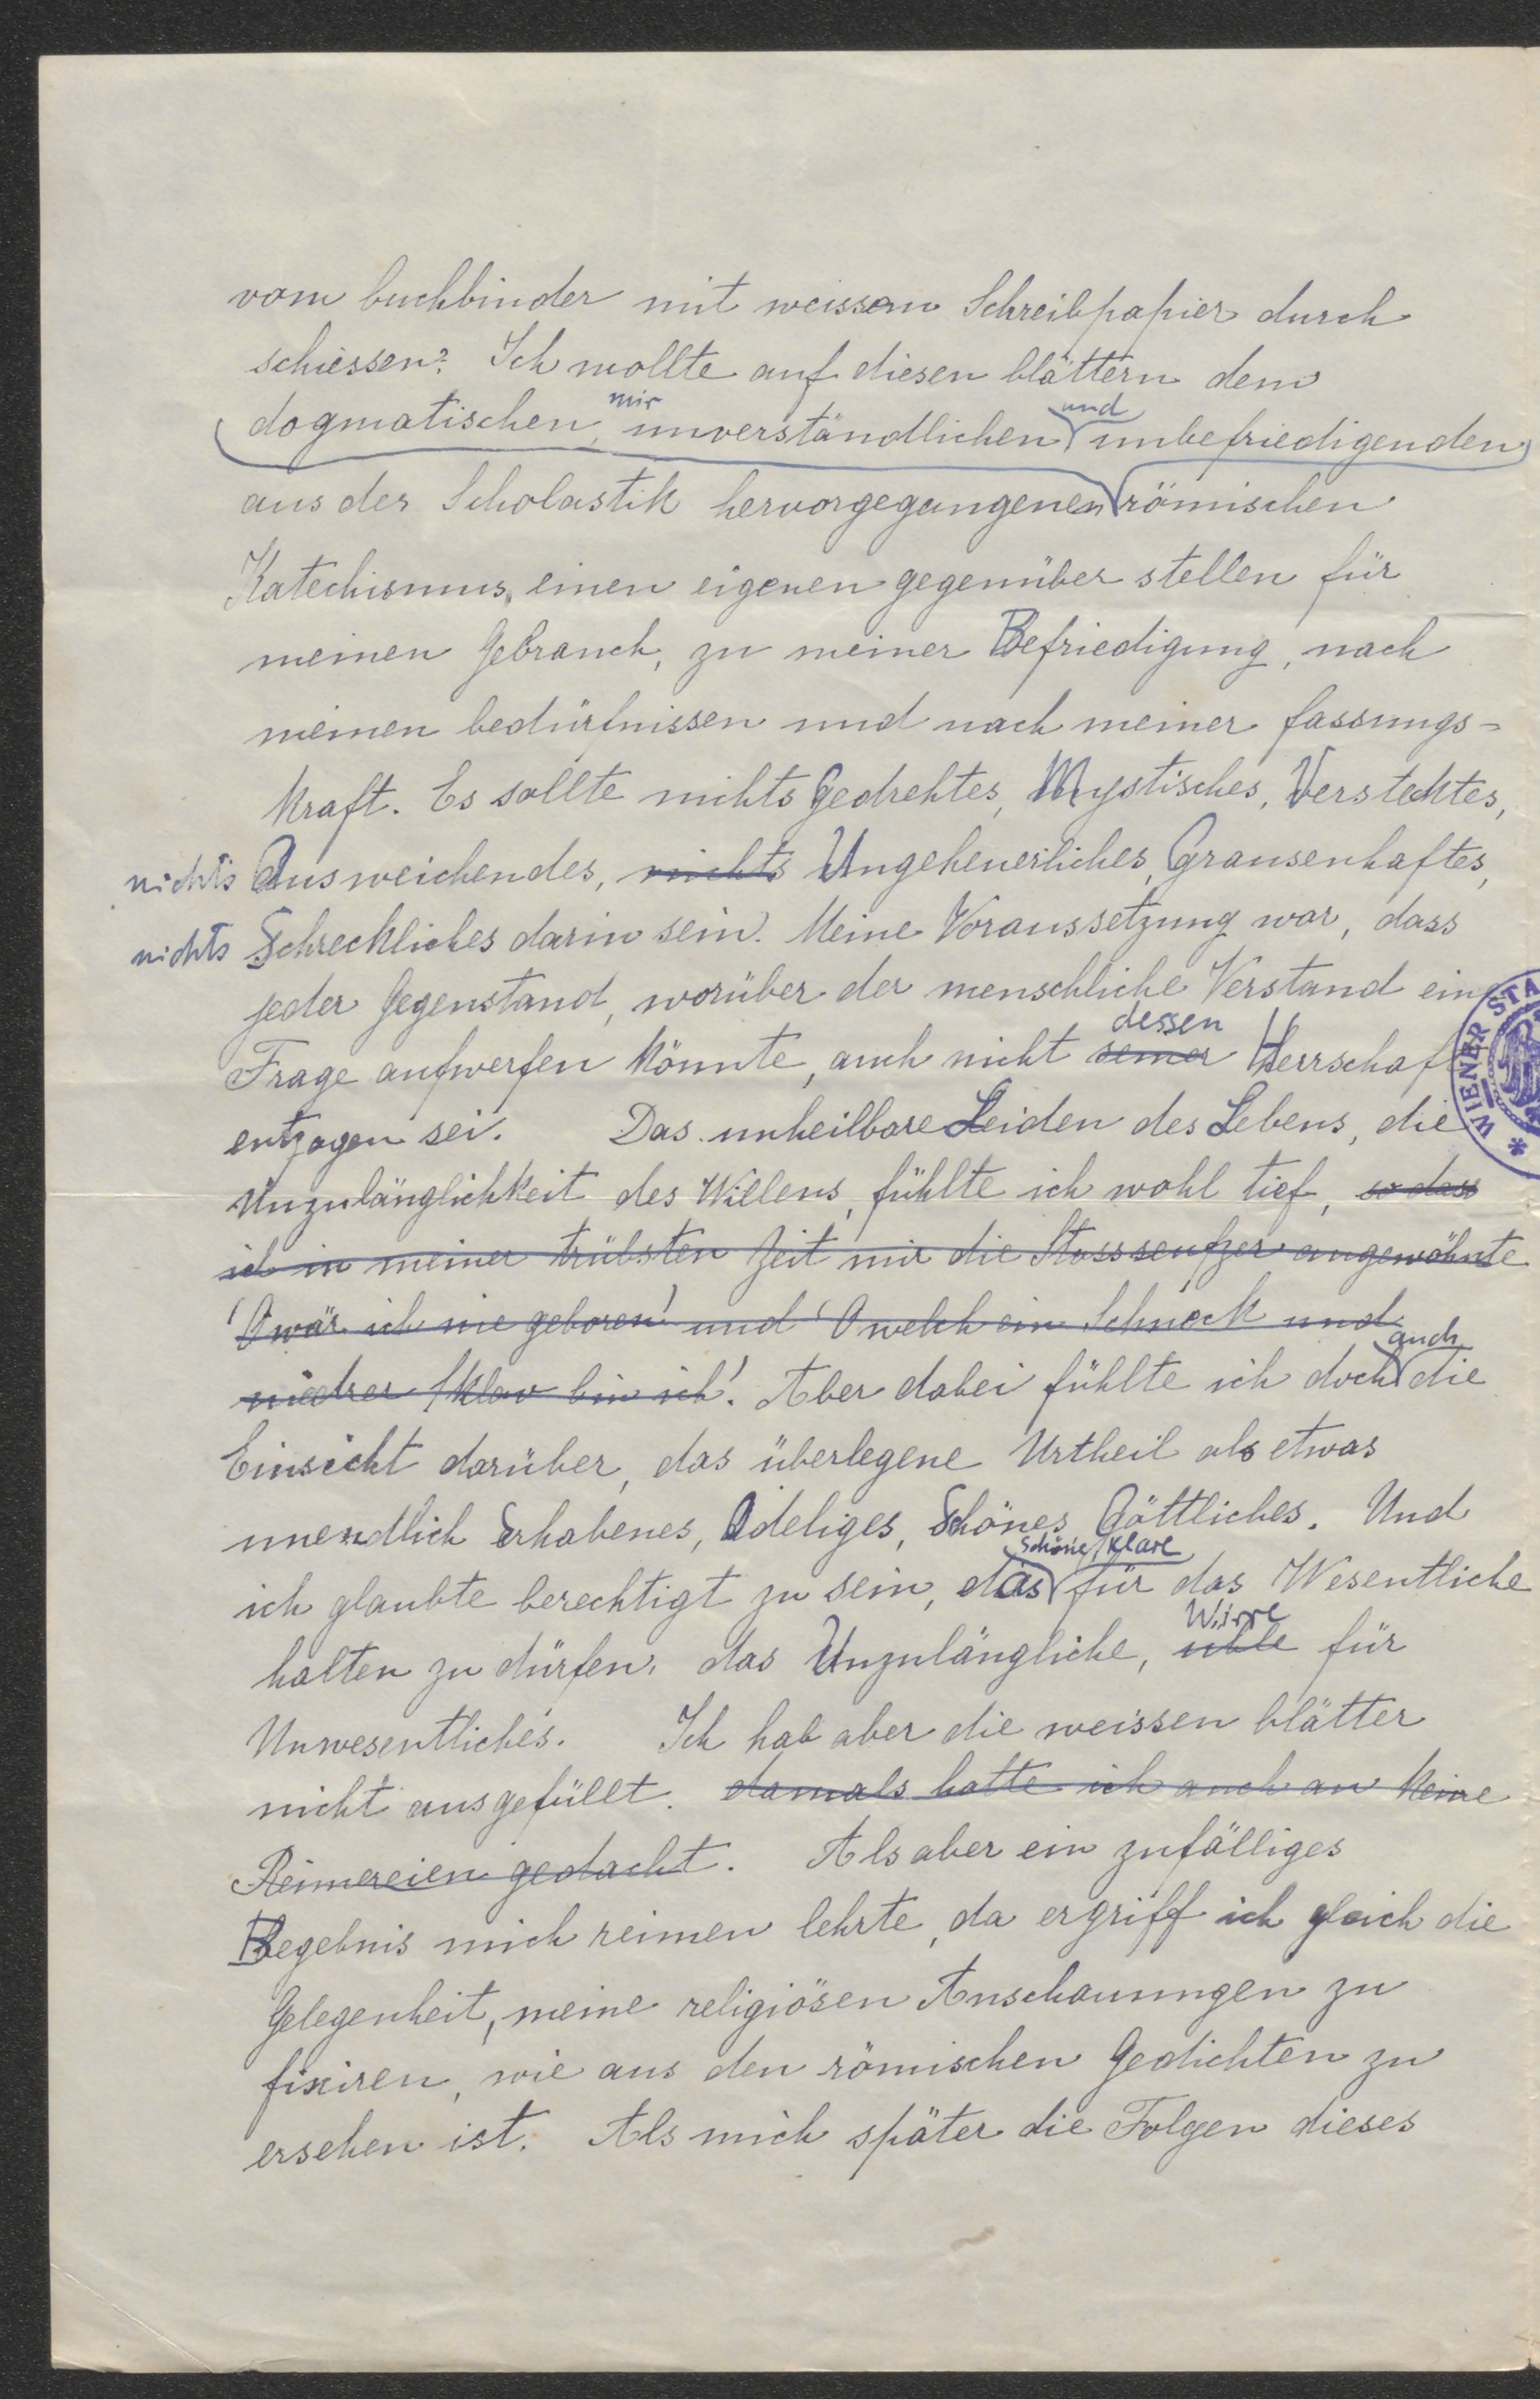 vom buchbinder mit weissem Schreibpapier durch
schiessen? Ich wollte auf diesen blättern dem
mir und
dogmatischen, unverständlichen unbefriedigenden
aus der Scholastik hervorgegangenen römischen
Katechismus, einen eigenen gegenüber stellen für
meinen Gebrauch, zu meiner Befriedigung, nach
meinen bedürfnissen und nach meiner fassungs-
kraft. Es sollte nichts Gedrehtes, Mystisches, Verstecktes,
nichts Ausweichendes, nichts Ungeheuerliches, Grausenhaftes,
nichts Schreckliches darin sein. Meine Voraussetzung war, dass
jeder Gegenstand, worüber der menschliche Verstand ein
dessen
Frage aufwerfen könnte, auch nicht seiner Herrschaft
entzogen sei. Das unheilbare Leiden des Lebens, die
Unzulänglichkeit des Willens, fühlte ich wohl tief, so dass
ich in meiner trübsten Zeit mir die Stossseufzer angewöhnte
'O wär ich nie geboren' und 'O welch ein Schuock und
auch
niedrer Sklav bin ich'! Aber dabei fühlte ich doch die
Einsicht darüber, das überlegene Urtheil als etwas
unendlich Erhabenes, Adeliges, Schönes Göttliches. Und
Schöne, Klare
ich glaubte berechtigt zu sein, das für das Wesentliche
Wirre
halten zu dürfen, das Unzulängliche, üble für
Unwesentliches. Ich hab aber die weissen blätter
nicht ausgefüllt. damals hatte ich auch an keine
Reimereien gedacht. Als aber ein zufälliges
Begebnis mich reimen lehrte, da ergriff ich gleich die
Gelegenheit, meine religiösen Anschauungen zu
fixiren, wie aus den römischen Gedichten zu
ersehen ist. Als mich später die Folgen dieses
* WIENER STA